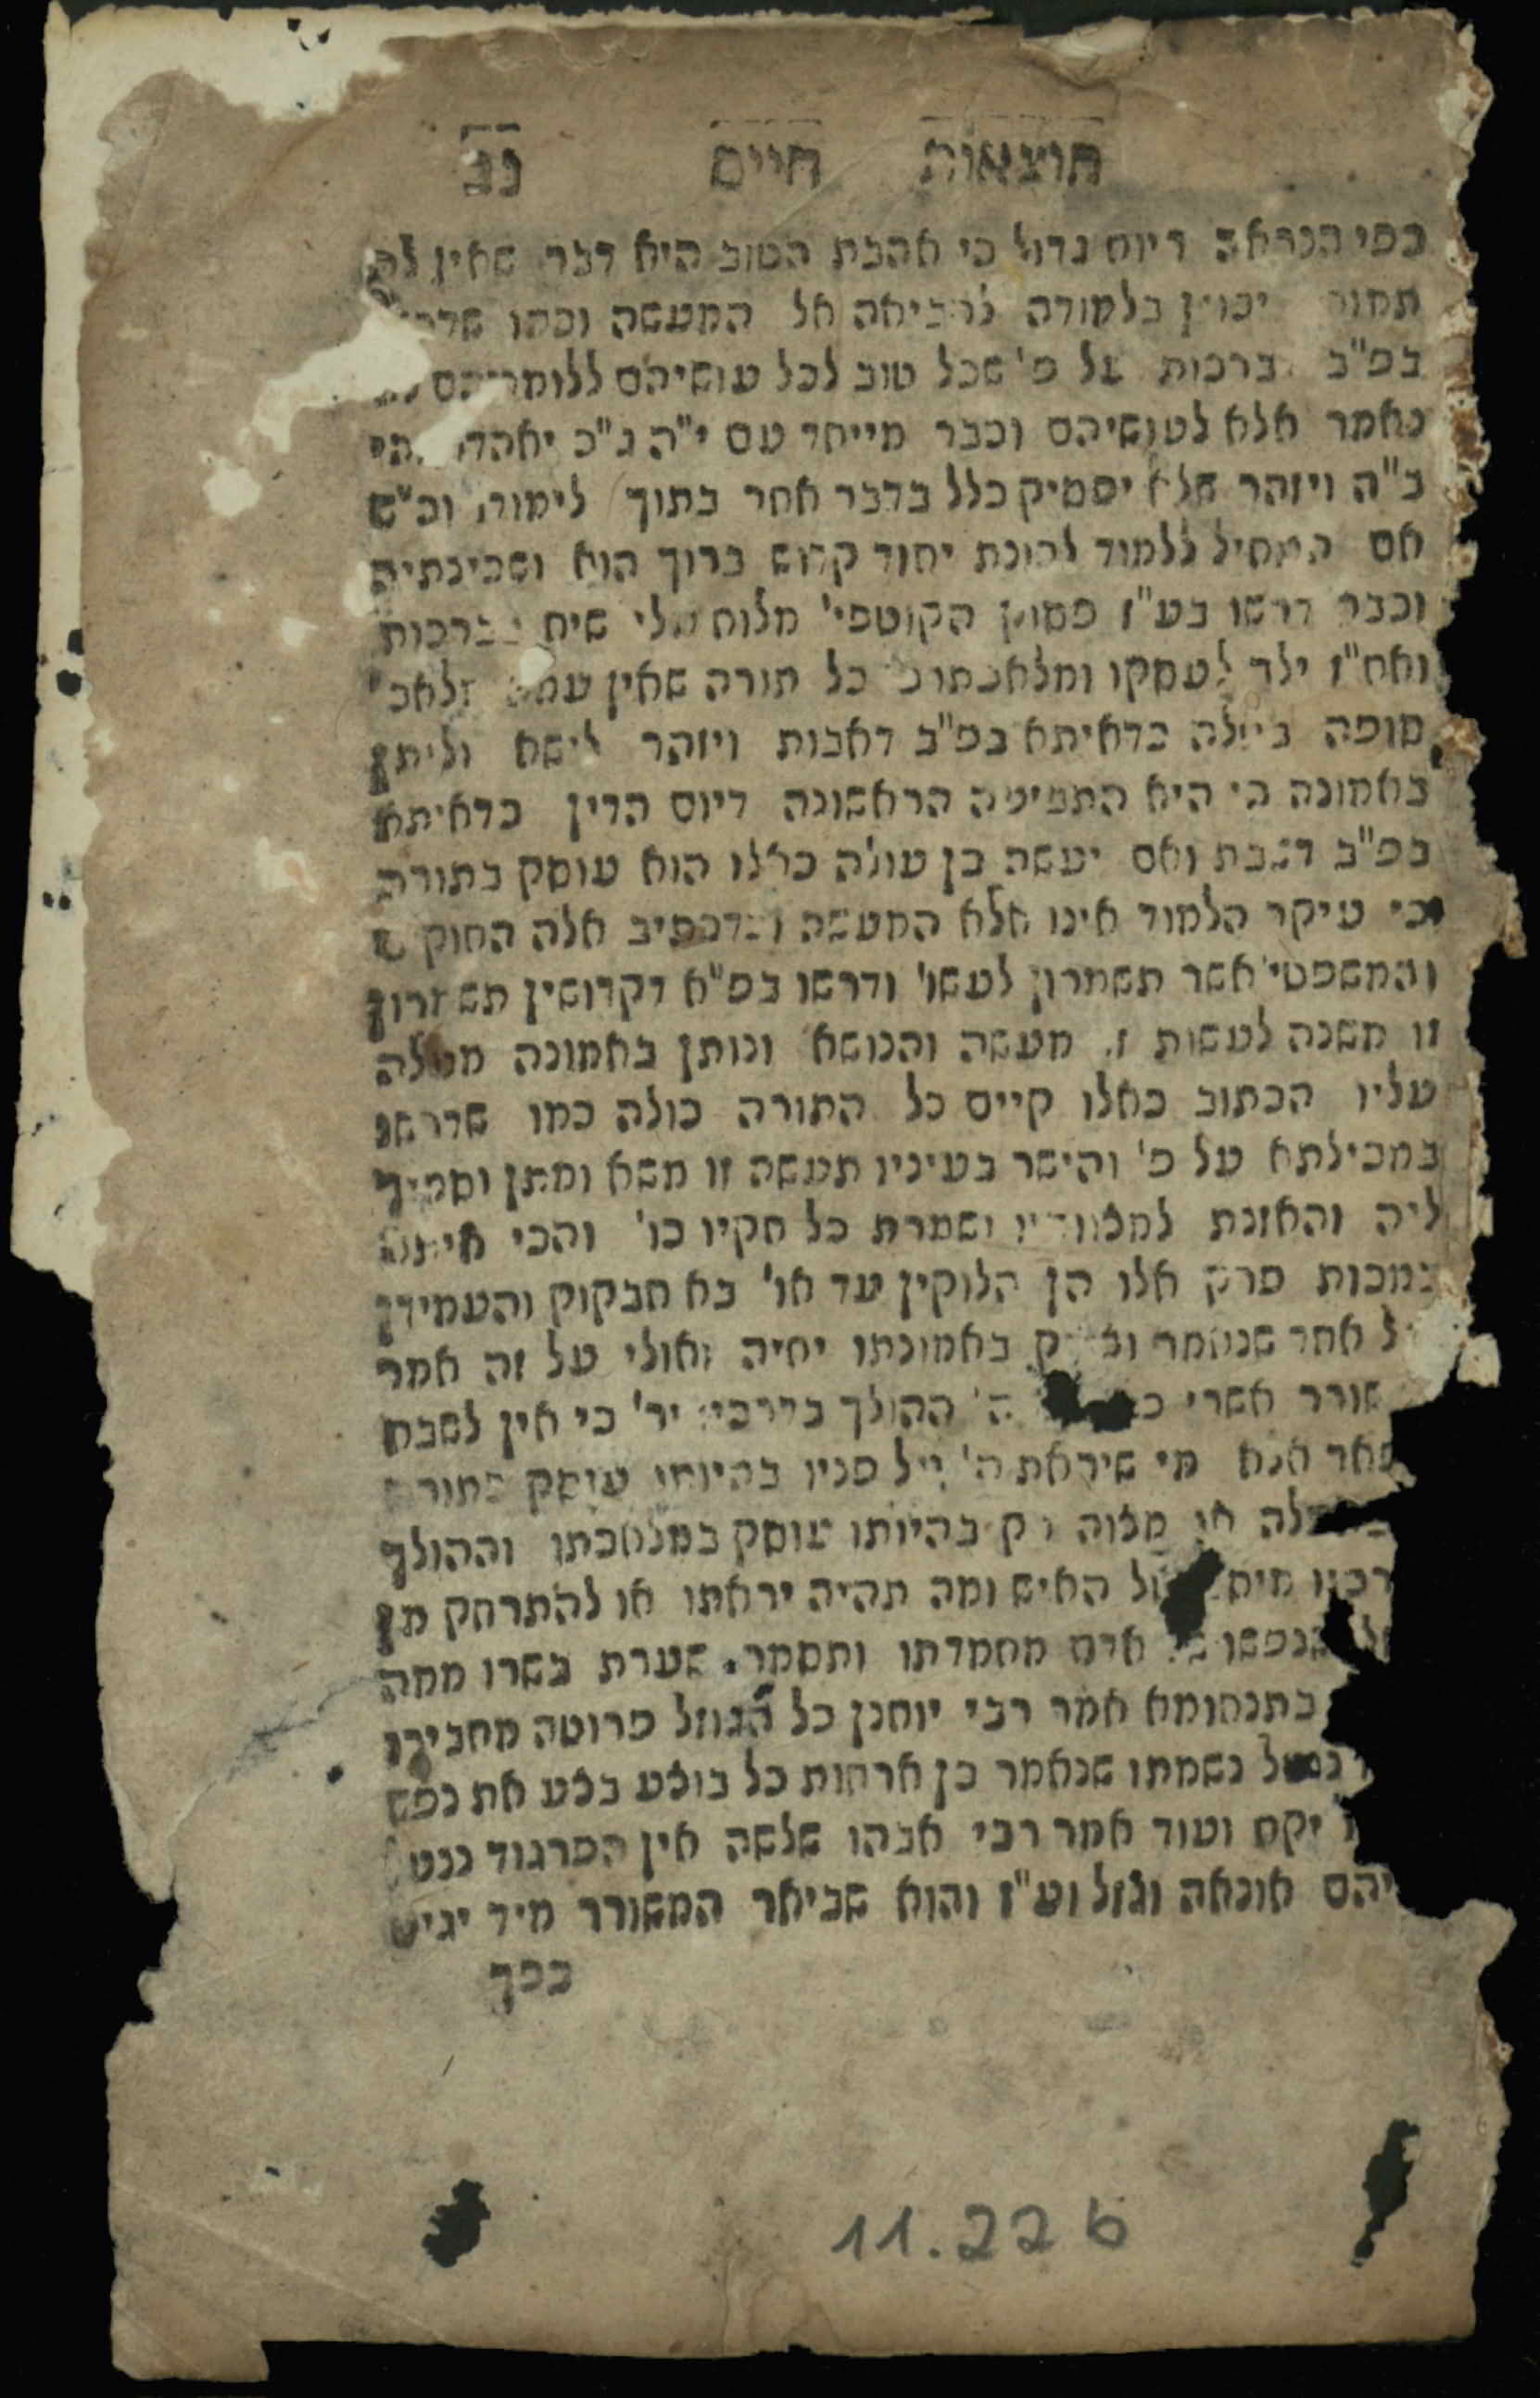 תוצאות חיים נג
כפי הנראה ריוח גדול כי אהבת הטוב היא דבר שאין לה
יכוין בלמודה להביאה אל המעשה וכמו
בפ"ב ברכות על פ' שכל טוב לכל עושיהם ללומדיהם לא
נאמר אלא לעושיהם וכבר מייחד עם י"ה ג"כ
ב"ה ויזהר שלא יפסיק כלל בדבר אחר בתוך לימודו וכ"ש
אם התחיל ללמוד לכונת יחוד קדוש ברוך הוא ושכינתיה
וכבר דרשו בע"ז פסוק הקוטפי' מלוח עלי שיח בברכות
ואח"ז ילך לעסקו ומלאכתו כי כל תורה שאין עמה מלאכ'
סופה בטלה כדאיתא בפ"ב דאבות ויזהר לישא וליתן
באמונה כי היא התביעה הראשונה דיום הדין כדאיתא
בפ"ב דשבת ואם יעשה כן עולה כאלו הוא עוסק בתורה
כי עיקר הלמוד אינו אלא המעשה וכדכתיב אלה החוקי'
והמשפטי' אשר תשמרון לעשו' ודרשו בפ"א דקדושין תשמרון
זו משנה לעשות זו מעשה והנושא ונותן באמונה מעלה
עליו הכתוב כאלו קיים כל התורה כולה כמו שדרשו
במכילתא על פ' והישר בעיניו תעשה זו משא ומתן וסמיך
ליה והאזנת למצוותיו ושמרת כל חקיו כו' והכי איתא
במכות פרק אלו הן הלוקין עד או' בא חבקוק והעמידן
על אחת שנאמר וצדיק באמונתו יחיה ואולי על זה אמר
המשורר אשרי כל ירא ה' ההולך בדרכיו יר' כי אין לשבח
ולפאר אלא מי שיראת ה' על פניו בהיותו עוסק בתורה
או מצוה רק בהיותו עוסק במלאכתו וההולך
האיש ומה תהיה יראתו או להתרחק מן
שנפשו של אדם מחמדתו ותסמר שערת בשרו ממה
בתנחומא אמר רבי יוחנן כל הגוזל פרוטה מחבירו
נוטל נשמתו שנאמר כן ארחות כל בוצע בצע את נפש
יקח ועוד אמר רבי אבהו שלשה אין הפרגוד ננעל
אונאה וגזל וע"ז והוא שביאר המשורר מיד יגיע
כפך
11.226